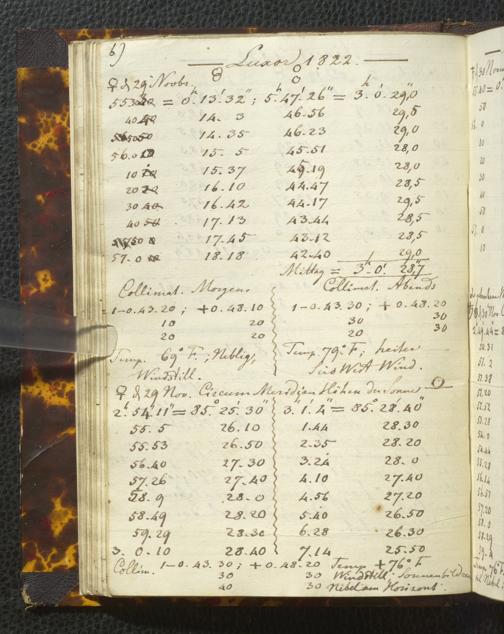 6)
Luxor 1822.
♀ d 29 Novbr. ☉ ☉ h
55.30 = 0.13.32"; 5.47.26" = 3.0.29,0
40 14. 3 46.56 29,5
50 14.35 46.23 29,0
56.0 15. 5 45.51 28,0
10 15.37 45.19 28,0
20 16.10 44.47 28,5
30 16.42 44.17 29,5
40 17.13 43.44 28,5
50 17.45 43.12 28,5
57.0 18.18 42.40 29,0
Mittag = 3.h 0.' 28,"7
Collimat. Morgens
1-0.43.20; +0.48.10
10 20
20 20
Temp. 69° F.; Neblig,
Windstill.
Collimat. Abends
1-0.43.30; +0.48.20
30 30
20 30
Temp. 79° F; heiter
West Wind.
♀ d 29 Nov. Circum Meridian Höhen der Sonne ☉
2.54.11" = 85.25.30
55.5 26.10
55.53 26.50
56.40 27.30
57.26 27.40
58.9 28.0
58.49 28.20
59.29 28.30
3.0.10 28.40
3.1.4" = 85.28.40"
1.44 28.30
2.35 28.20
3.24 28.0
4.10 27.40
4.56 27.20
5.40 26.50
6.28 26.30
7.14 25.50
Collim. 1-0.43.30; +0.48.20 Temp +76° F
30 30 Windstill.
40 30 Nebel am Horizont.